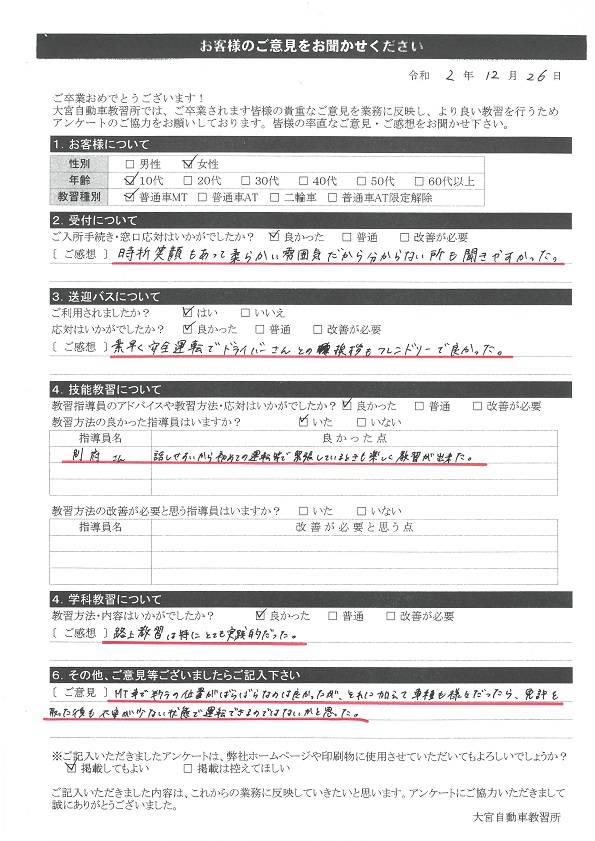 お客様のご意見をお聞かせください
令和 2 年 12 月 26 日
ご卒業おめでとうございます！
大宮自動車教習所では、ご卒業されます皆様の貴重なご意見を業務に反映し、より良い教習を行うため
アンケートのご協力をお願いしております。皆様の率直なご意見・ご感想をお聞かせ下さい。
1. お客様について
性別 □ 男性 ☑ 女性
年齢 ☑ 10代 □ 20代 □ 30代 □ 40代 □ 50代 □ 60代以上
教習種別 ☑ 普通車MT □ 普通車AT □ 二輪車 □ 普通車AT限定解除
2. 受付について
ご入所手続き・窓口応対はいかがでしたか？ ☑ 良かった □ 普通 □ 改善が必要
〔 ご感想 〕時折笑顔もあって柔らかい雰囲気だから分からない所も聞きやすかった。
3. 送迎バスについて
ご利用されましたか？ ☑ はい □ いいえ
応対はいかがでしたか？ ☑ 良かった □ 普通 □ 改善が必要
〔 ご感想 〕素早く安全運転でドライバーさんとの挨拶もフレンドリーで良かった。
4. 技能教習について
教習指導員のアドバイスや教習方法・応対はいかがでしたか？ ☑ 良かった □ 普通 □ 改善が必要
教習方法の良かった指導員はいますか？ ☑ いた □ いない
指導員名 良かった点
別府 さん 話しやすいから初めての運転で緊張しているときも楽しく教習が出来た。
教習方法の改善が必要と思う指導員はいますか？ □ いた □ いない
指導員名 改善が必要と思う点
4. 学科教習について
教習方法・内容はいかがでしたか？ ☑ 良かった □ 普通 □ 改善が必要
〔 ご感想 〕路上教習は特にとても実践的だった。
6. その他、ご意見等ございましたらご記入下さい
〔 ご意見 〕MT車で の位置がばらばらなのは良かったが、それに加えて車種も様々だったら、免許を
取った後も 少ない状態で運転できるのではないかと思った。
※ご記入いただきましたアンケートは、弊社ホームページや印刷物に使用させていただいてもよろしいでしょうか？
☑ 掲載してもよい □ 掲載は控えてほしい
ご記入いただきました内容は、これからの業務に反映していきたいと思います。アンケートにご協力いただきまして
誠にありがとうございました。
大宮自動車教習所